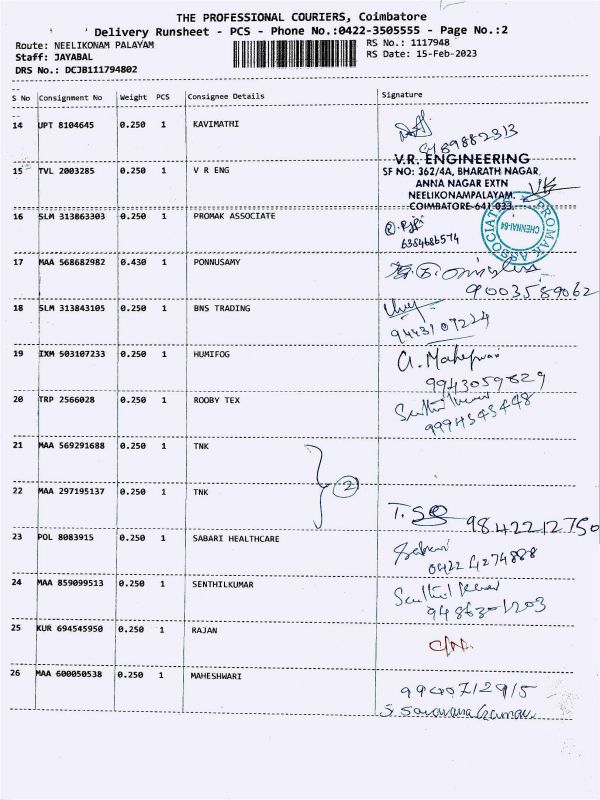 THE PROFESSIONAL COURIERS, Coimbatore
Delivery Runsheet - PCS - Phone No.:0422-3505555 - Page No.:2
Route: NEELIKONAM PALAYAM RS No.: 1117948
Staff: JAYABAL RS Date: 15-Feb-2023
DRS No.: DCJB111794802
S No Consignment No Weight PCS Consignee Details Signature
14 UPT 8104645 0.250 1 KAVIMATHI
V.R. ENGINEERING
15 TVL 2003285 0.250 1 V R ENG SF NO: 362/4A, BHARATH NAGAR,
ANNA NAGAR EXTN
NEELIKONAMPALAYAM,
COIMBATORE-641 033.
16 SLM 313863303 0.250 1 PROMAK ASSOCIATE
PROMAK ASSOCIATE CHENNAI-64
6384686574
17 MAA 568682982 0.430 1 PONNUSAMY
9003589062
18 SLM 313843105 0.250 1 BNS TRADING
9443107224
19 IXM 503107233 0.250 1 HUMIFOG
9943059629
20 TRP 2566028 0.250 1 ROOBY TEX
Senthil Kumar
9994545448
21 MAA 569291688 0.250 1 TNK
2
22 MAA 297195137 0.250 1 TNK
9842212750
23 POL 8083915 0.250 1 SABARI HEALTHCARE
Sabari
0422 4274888
24 MAA 859099513 0.250 1 SENTHILKUMAR
Senthil Kumar
25 KUR 694545950 0.250 1 RAJAN
26 MAA 600050538 0.250 1 MAHESHWARI
9940712915
S. Saravana Kumar